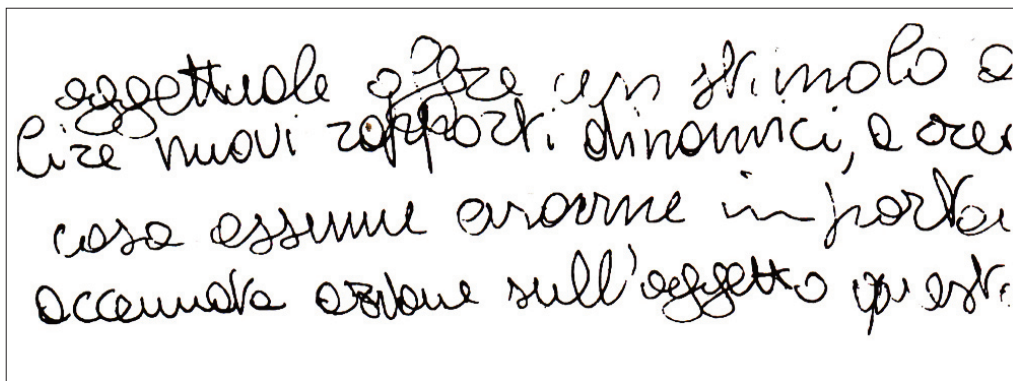 oggettuale offre un stimolo a
lire nuovi rapporti dinamici, a crea
cosa assume enorme importa
accennata azione sull'oggetto questi